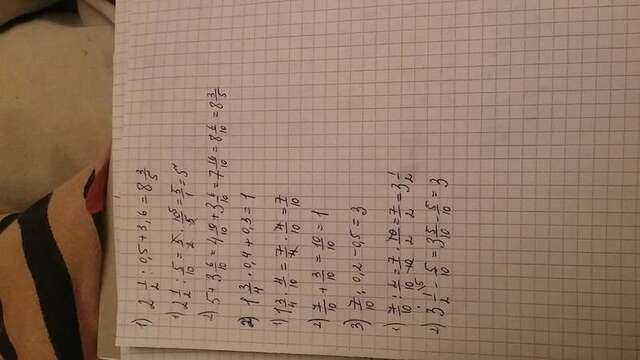 1) 2 1/2 : 0,5 + 3,6 = 8 3/5
1) 2 1/2 : 5/10 = 5/2 · 10/5 = 5/1 = 5
2) 5 + 3 6/10 = 4 10/10 + 3 6/10 = 7 16/10 = 8 6/10 = 8 3/5
2) 1 3/4 · 0,4 + 0,3 = 1
1) 1 3/4 · 4/10 = 7/4 · 4/10 = 7/10
2) 7/10 + 3/10 = 10/10 = 1
3) 7/10 : 0,2 - 0,5 = 3
1) 7/10 : 2/10 = 7/10 · 10/2 = 7/2 = 3 1/2
2) 3 1/2 - 5/10 = 3 5/10 - 5/10 = 3